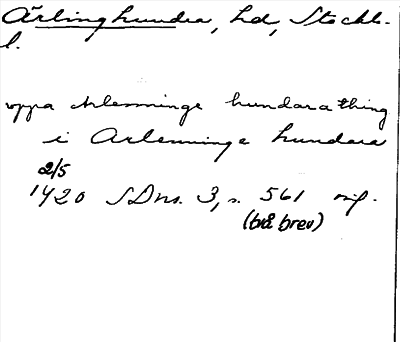 Ärlinghundra, hd, Stockh.
l.
uppa Arlenninge hundara thing
i Arlenninge hundara
2/5
1420 SDns. 3, s. 561 orig.
(två brev)